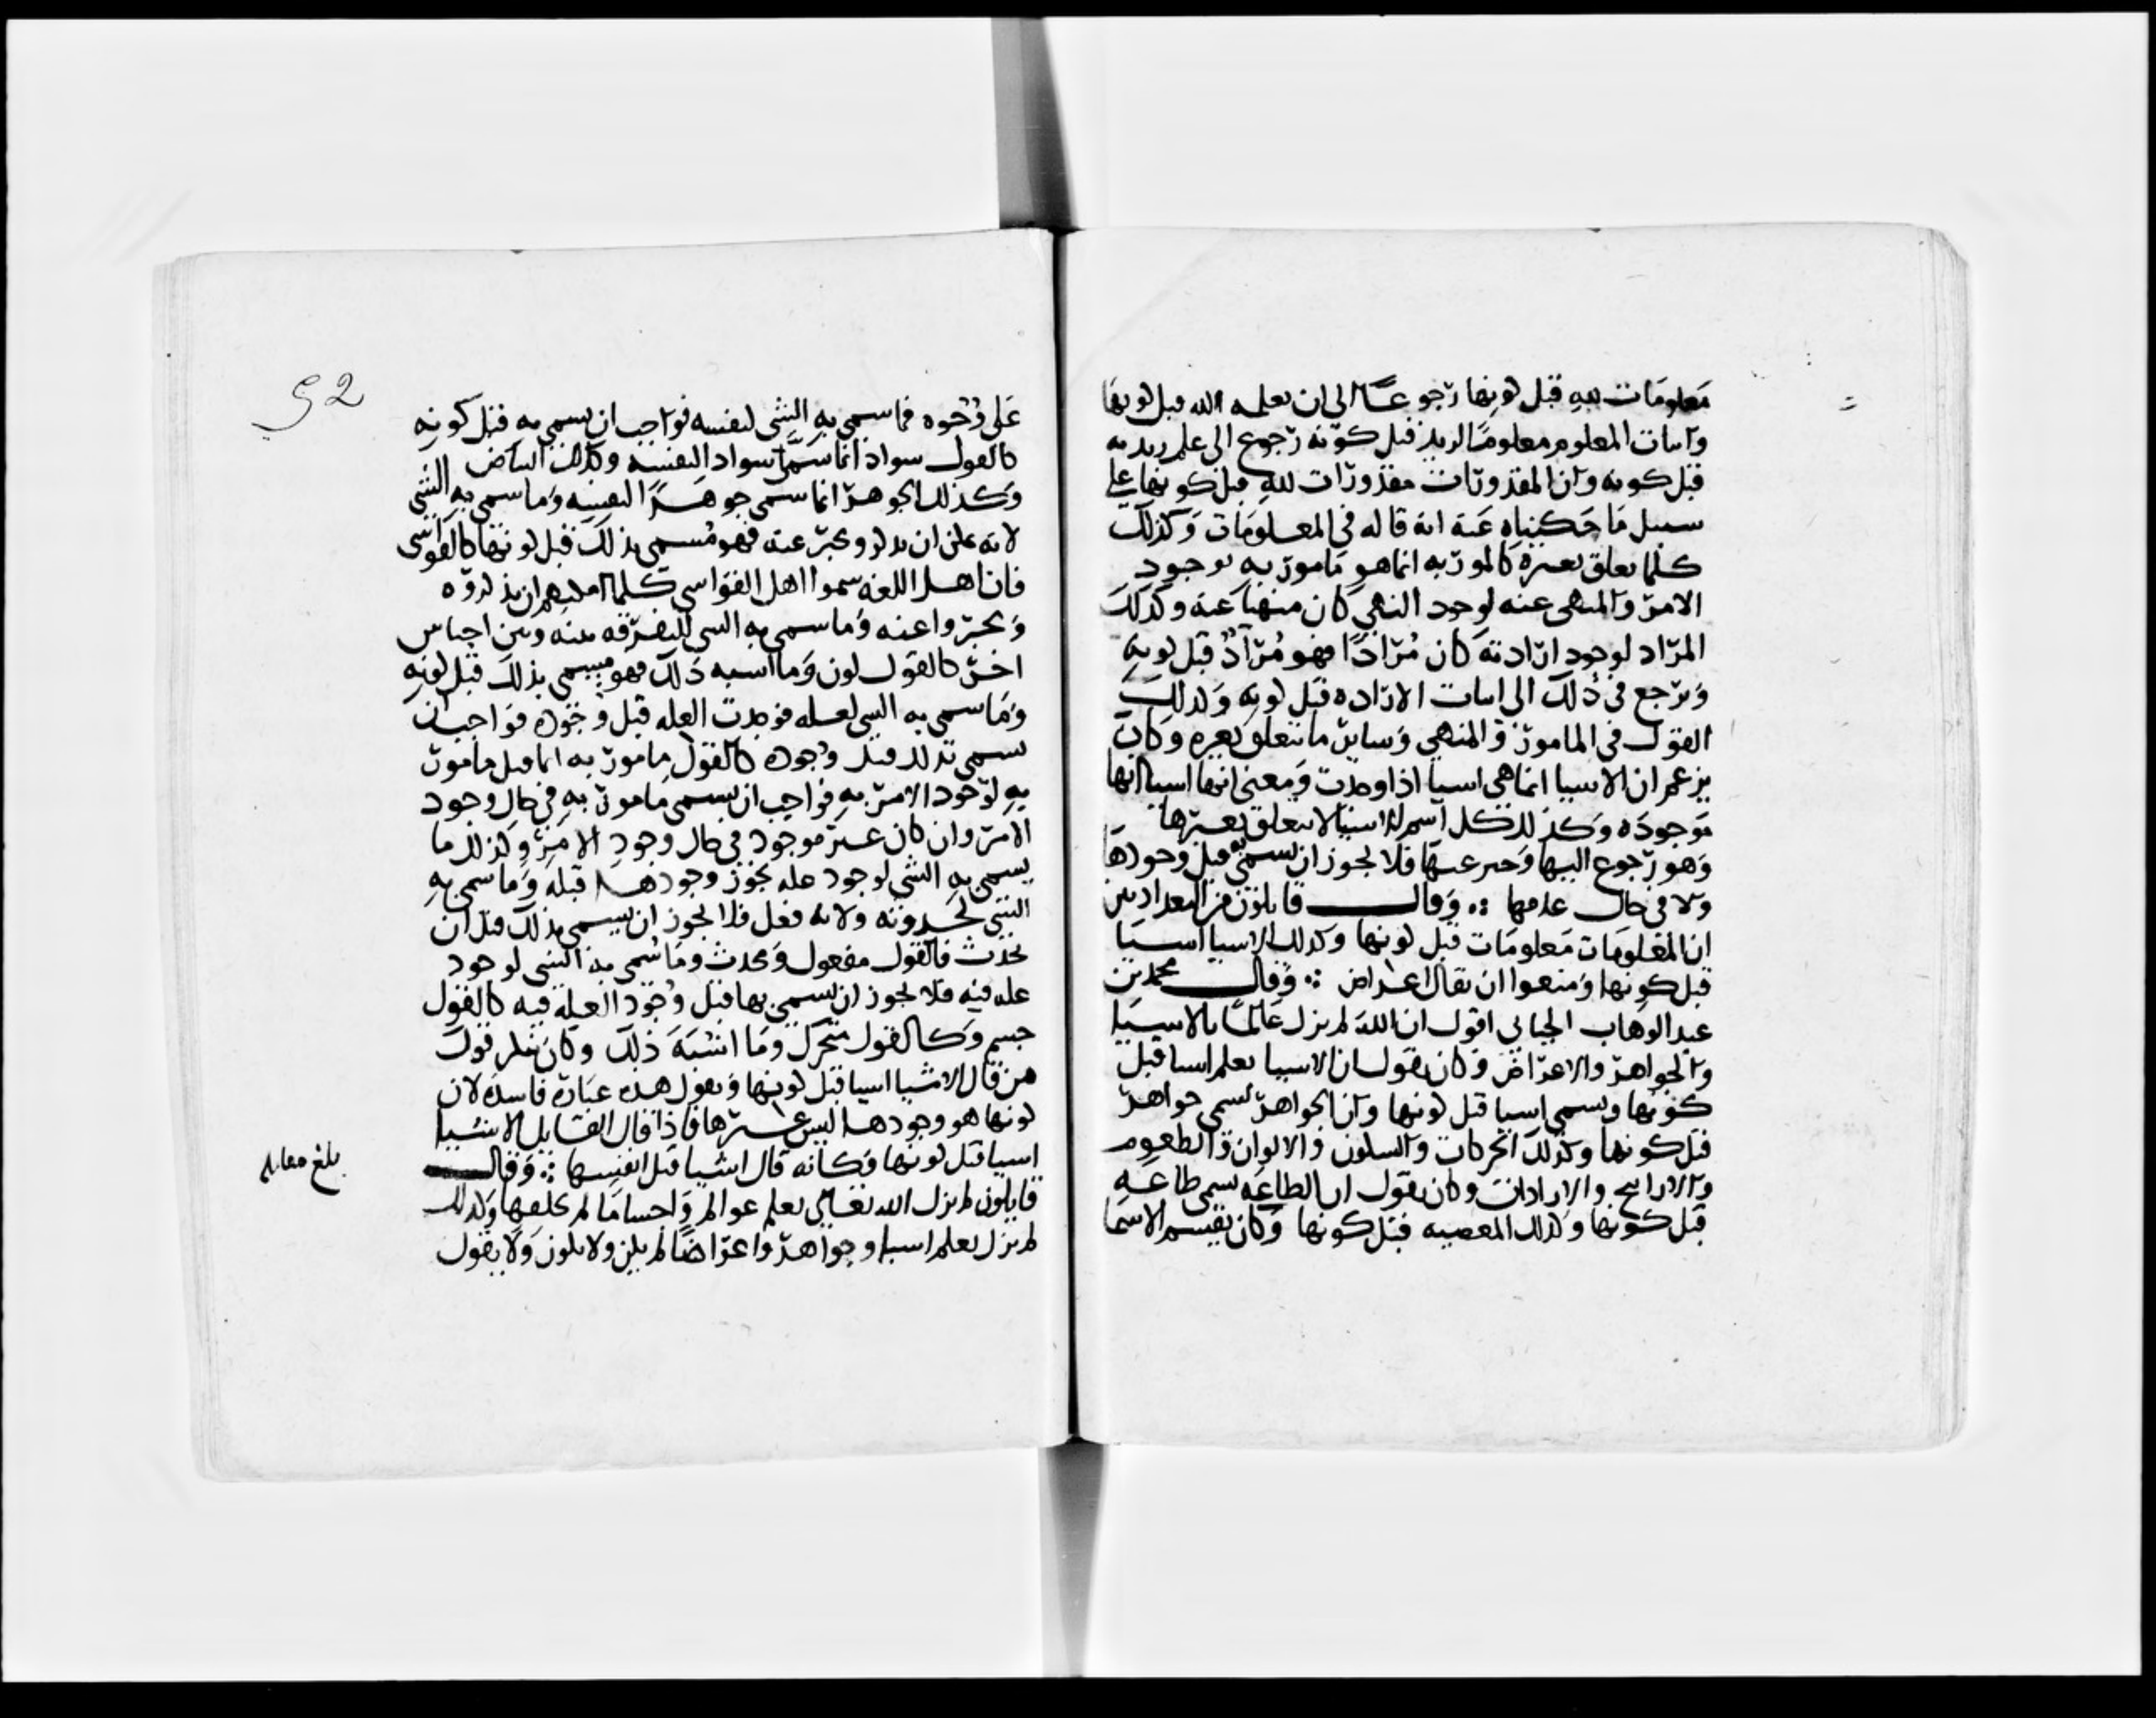 معلومات لله قبل كونها رجوعا الى ان يعلمه الله قبل كونها
واثبات المعلوم معلوما لزيد قبل كونه رجوع الى علم زيد به
قبل كونه وان المقدورات مقدورات لله قبل كونها على
سبيل ما حكيناه عنه انه قاله في المعلومات وكذلك
كلما تعلق بغيره كالمور به انما هو مامور به لوجود
الامر والمنهى عنه لوجود النهي كان منهيا عنه وكذلك
المراد لوجود ارادته كان مرادا فهو مراد قبل كونه
ويرجع في ذلك الى اثبات الارادة قبل كونه وكذلك
القول في المامور والمنهي وساير ما يتعلق بغيره وكان
يزعم ان الاشيا انما هي اشيا اذا وجدت ومعنى انها اشيا انها
موجوده وكذلك كل اسم لاشيا لا يتعلق بغيرها
وهو رجوع اليها وخبر عنها فلا يجوز ان يسمى به قبل وجودها
ولا في حال عدمها ∴ وقال قايلون من البغداديين
ان المعلومات معلومات قبل كونها وكذلك الاشيا اشيا
قبل كونها ومنعوا ان يقال اعراض ∴ وقال محمد بن
عبد الوهاب الجبائي اقول ان الله لم يزل عالما بالاشيا
والجواهر والاعراض وكان يقول ان الاشيا يعلم اشيا قبل
كونها وتسمى اشيا قبل كونها وان الجواهر تسمى جواهر
قبل كونها وكذلك الحركات والسكون والالوان والطعوم
والاراييح والارادات وكان يقول ان الطاعه تسمى طاعه
قبل كونها وكذلك المعصيه قبل كونها وكان يقسم الاسما
52
على وجوه فما سمى به الشي لنفسه فواجب ان يسمى به قبل كونه
كالقول سواد انما سمى سوادا لنفسه وكذلك البياض
وكذلك الجوهر انما سمى جوهرا لنفسه وما سمى به الشي
لانه يمكن ان يذكر ويخبر عنه فهو مسمى بذلك قبل كونها كالقول شي
فان اهل اللغه سموا اهل القول شي كلما امكنهم ان يذكروه
ويخبروا عنه وما سمى به الشي للتفرقه بينه وبين اجناس
اخر كالقول لون وما اشبه ذلك فهو مسمى بذلك قبل كونه
وما سمى به الشي لعله فوجدت العله قبل وجوده فواجب ان
يسمى بذلك قبل وجوده كالقول مامور به انما قيل مامور
به لوجود الامر به فواجب ان يسمى مامور به في حال وجود
الامر وان كان غير موجود في حال وجود الامر وكذلك ما
يسمى به الشي لوجود عله يجوز وجودها قبله وما سمى به
الشي لحدوثه ولانه فعل فلا يجوز ان يسمى بذلك قبل ان
يحدث فالقول مفعول ومحدث وما سمى به الشي لوجود
عله فيه فلا يجوز ان يسمى بها قبل وجود العلة فيه كالقول
جسم وكالقول متحرك وما اشبه ذلك وكان ينكر قول
من قال الاشيا اشيا قبل كونها ويقول هذه عبارة فاسدة لان
كونها هو وجودها ليس غيرها فاذا قال القايل الاشيا
اشيا قبل كونها فكانه قال اشيا قبل انفسها ∴ وقال
بلغ مقابله
قايلون لم يزل الله تعالى يعلم عوالم واجساما لم يخلقها وكذلك
لم يزل يعلم اشيا وجواهر واعراضا لم يكن ولا يكون ولا يقول